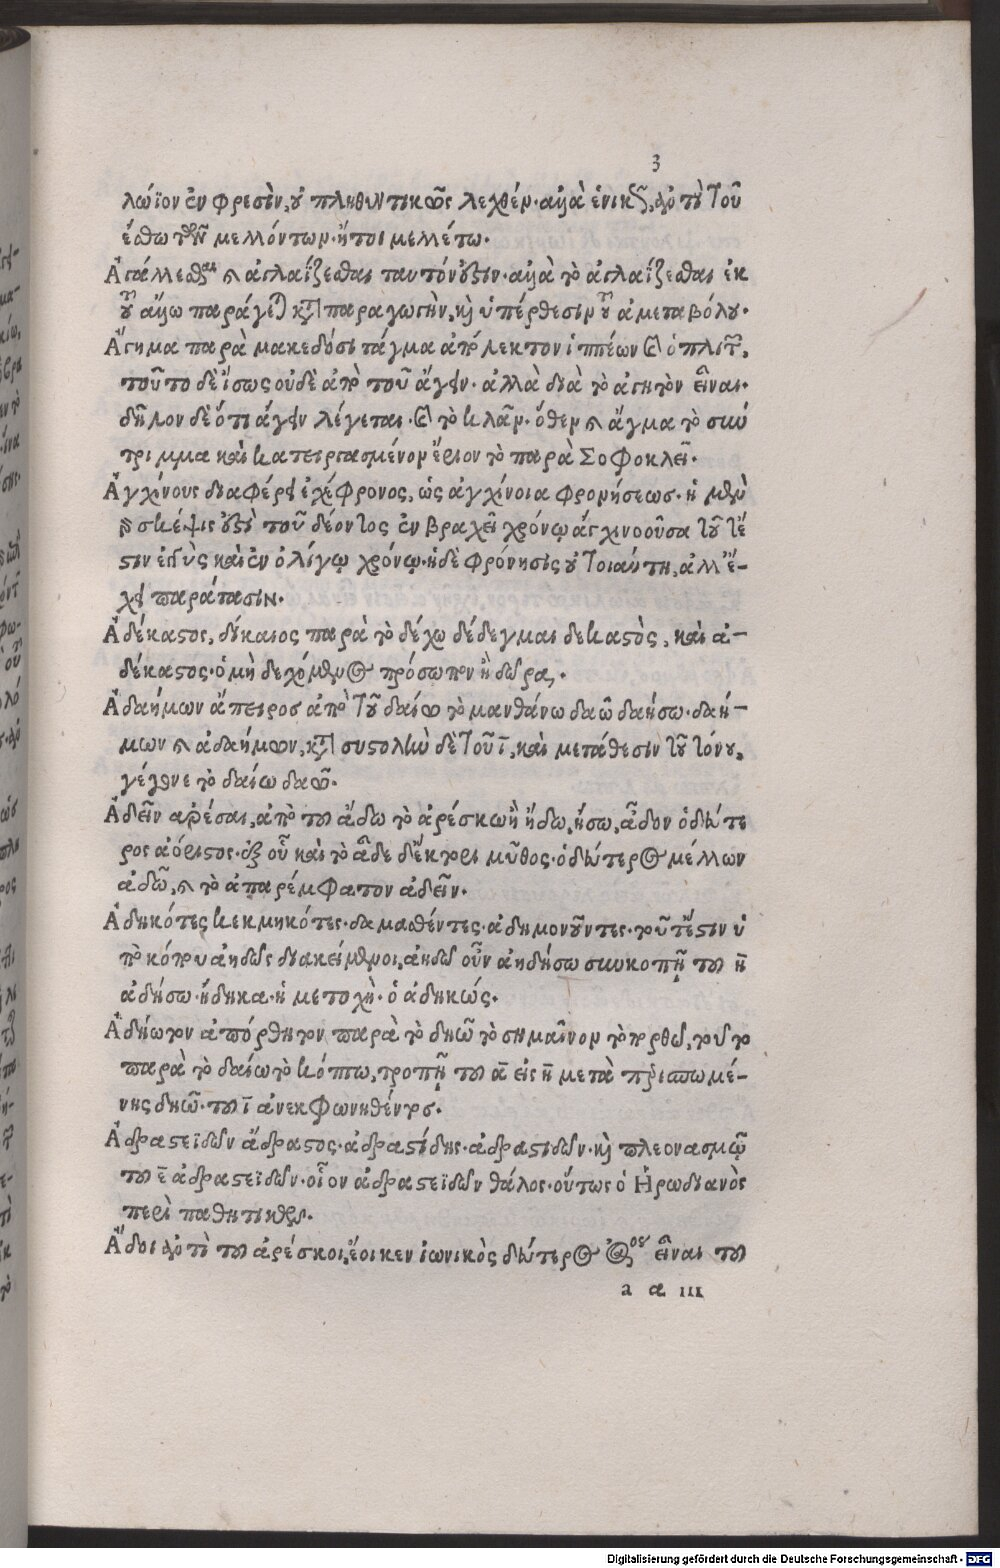 3
λώϊον ἐν φρεσὶν, οὐ πληθυντικῶς λεχθέν· ἀλλὰ ἑνικῶς, ἀντὶ τοῦ
ἔσθω τῶν μελλόντων· ἤτοι μελλέτω.
Ἀγάλλεσθαι καὶ ἀγλαΐζεσθαι ταυτόν ἐστιν· ἀλλὰ τὸ ἀγλαΐζεσθαι ἐκ
τοῦ παράγεται κατὰ παραγωγὴν, καὶ ὑπέρθεσιν τοῦ ἀμεταβόλου·
Ἄγημα παρὰ μακεδόσι τάγμα ἀπὸ λεκτον ἱππέων καὶ ὁπλιτῶν,
τοῦτο δὲ ἴσως οὐδὲ ἀπὸ τοῦ ἄγειν· ἀλλὰ διὰ τὸ ἀγητὸν εἶναι·
δῆλον δὲ ὅτι ἄγειν λέγεται· καὶ τὸ κλᾶν· ὅθεν καὶ ἄγμα τὸ σύν
τριμμα καὶ κατειργασμένον ἔριον τὸ παρὰ Σοφοκλεῖ·
Ἀγχίνους διαφέρει ἐχέφρονος, ὡς ἀγχίνοια φρονήσεως· ἡ μὲν
γὰρ σκέψις ἐστὶ τοῦ δέοντος ἐν βραχεῖ χρόνῳ ἀγχινοοῦσα τοῦτέ
στιν ἐγγὺς καὶ ἐν ὀλίγῳ χρόνῳ· ἡ δὲ φρόνησις οὐ τοιαύτη, ἀλλ' ἔ-
χει παράτασιν.
Ἀδέκαστος, δίκαιος παρὰ τὸ δέχω δέδεγμαι δεκαστὸς, καὶ ἀ-
δέκαστος· ὁ μὴ δεχόμενος πρόσωπον ἢ δῶρα,·
Ἀδαήμων ἄπειρος ἀπὸ τοῦ δαίω τὸ μανθάνω δαῶ δαήσω· δαή-
μων καὶ ἀδαήμων, κατὰ συστολὴν δὲ τοῦ ῑ, καὶ μετάθεσιν τοῦ τόνου,
γέγονε τὸ δαίω δαῶ.
Ἀδεῖν ἀρέσαι, ἀπὸ τοῦ ἅδω τὸ ἀρέσκω ἢ ἥδω, ἥσω, ἆδον ὁ δεύτε
ρος ἀόριστος· ἐξ οὗ καὶ τὸ ἅδε δ' ἕκτορι μῦθος· ὁ δεύτερος μέλλων
ἁδῶ, καὶ τὸ ἀπαρέμφατον ἁδεῖν.
Ἀδηκότες κεκμηκότες· δαμασθέντες· ἀδημονοῦντες· τοῦτέστιν ὑ
πὸ κόπου ἀηδῶς διακείμενοι, ἀηδῶ οὖν ἀηδήσω συγκοπῇ τοῦ η̄
ἀδήσω· ἤδηκα· ἡ μετοχὴ· ὁ ἀδηκώς.
Ἀδήωτον ἀπόρθητον παρὰ τὸ δηῶ τὸ σημαῖνον τὸ πορθῶ, τοῦτο
παρὰ τὸ δαίω τὸ κόπτω, τροπῇ τοῦ ᾱ εἰς η̄ μετὰ περισπωμέ-
νης δηῶ· τοῦ ῑ ἀνεκφωνηθέντος.
Ἀδραστεϊδῶν ἄδραστος· ἀδραστίδης· ἀδραστιδῶν· καὶ πλεονασμῷ
τοῦ ε̄ ἀδραστεϊδῶν· οἷον ἀδραστεϊδῶν θάλος· οὕτως ὁ Ἡρωδιανὸς
περὶ παθητικῶν.
Ἅδοι ἀντὶ τοῦ ἀρέσκοι, ἔοικεν ἰωνικὸς δεύτερος ἀόριστος εἶναι τοῦ
a α iii
Digitalisierung gefördert durch die Deutsche Forschungsgemeinschaft - DFG